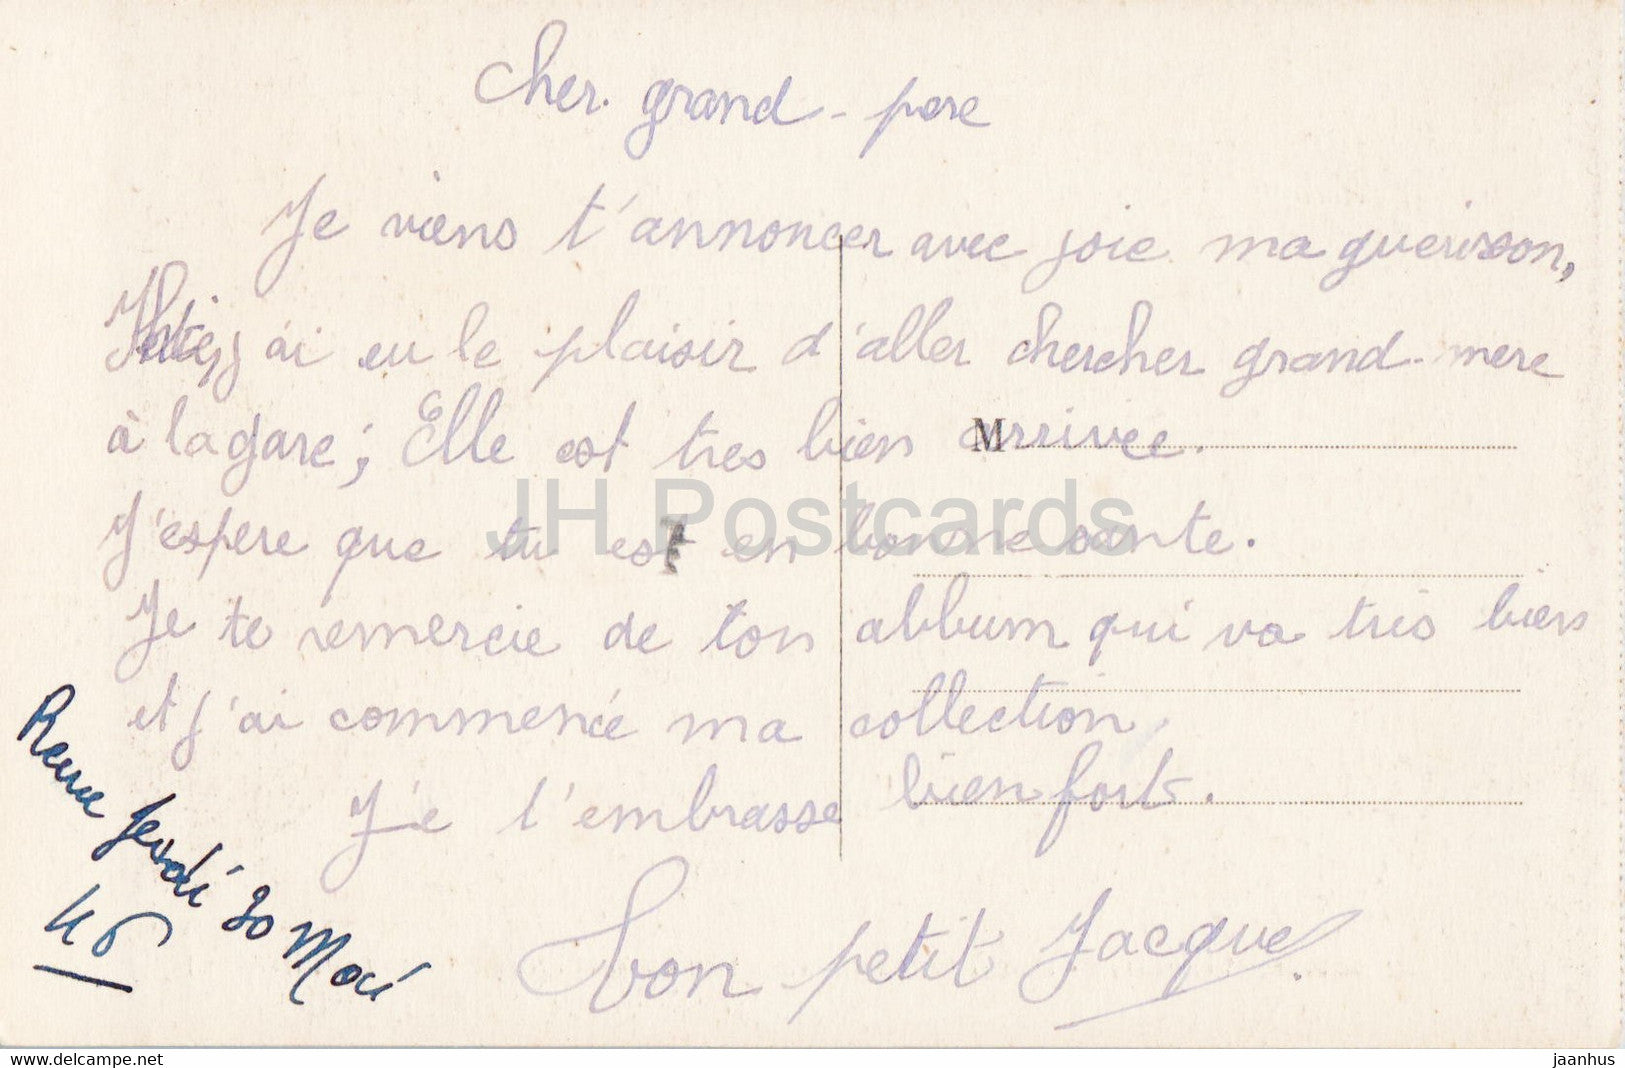 Cher. grand-pere
Je viens t'annoncer avec joie ma guerison,
j'ai eu le plaisir d'aller chercher grand-mere
à la gare; Elle est tres bien arrivee.
M
J'espere que tu est en bonne sante.
Je te remercie de ton album qui va très bien
et j'ai commencé ma collection
J'e t'embrasse bien fort.
Ton petit Jacque
jeudi 30 Mai
46
JH Postcards
www.delcampe.net
jaanhus